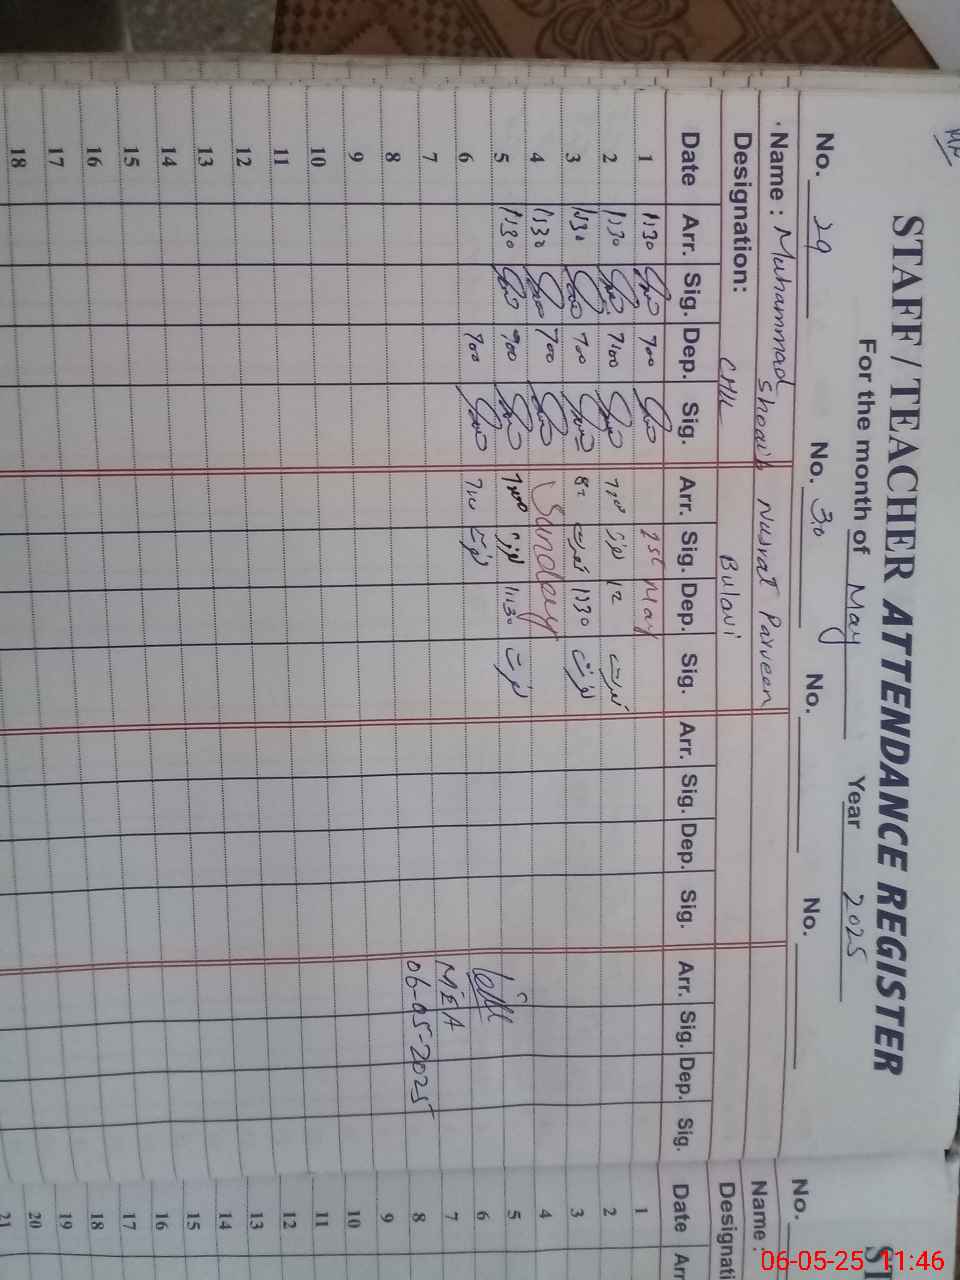 STAFF / TEACHER ATTENDANCE REGISTER
For the month of May Year 2025
No. 29 No. 30 No. No.
Name : Muhammad Shoaib Nusrat Parveen
Designation: CMW Bulavi
Date Arr. Sig. Dep. Sig. Arr. Sig. Dep. Sig. Arr. Sig. Dep. Sig. Arr. Sig. Dep. Sig.
1 1:30 700 1st May
2 1:30 7:00 700 12
3 1:30 700 8: نصرت 1:30 نصرت
4 1:30 700 Sunday
5 1:30 900 700 نصرت 11:30 نصرت
6 900 700 نصرت
7 MEA
8 06-05-2025
9
10
11
12
13
14
15
16
17
18
No.
Name :
Designati
Date Arr
1
2
3
4
5
6
7
8
9
10
11
12
13
14
15
16
17
18
19
20
21
06-05-25 11:46